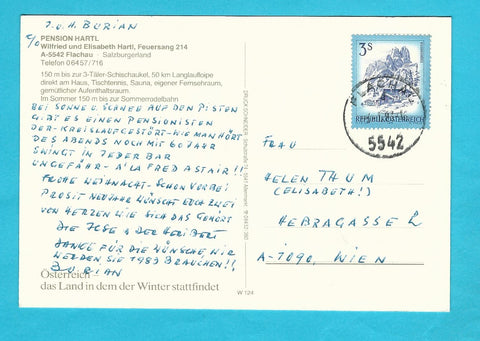 I. u. H. BURIAN
c/o PENSION HARTL
Wilfried und Elisabeth Hartl, Feuersang 214
A-5542 Flachau · Salzburgerland
Telefon 06457/716
150 m bis zur 3-Täler-Schischaukel, 50 km Langlaufloipe
direkt am Haus, Tischtennis, Sauna, eigener Fernsehraum,
gemütlicher Aufenthaltsraum.
Im Sommer 150 m bis zur Sommerrodelbahn
BEI SONNE U. SCHNEE AUF DEN PISTEN
GIBT ES EINEN PENSIONISTEN
DER-KREISLAUFGESTÖRT-WIE MAN HÖRT
DES ABENDS NOCH MIT 60 JAHR
SWINGT IN JEDER BAR
UNGEFÄHR - Á LA FRED ASTAIR!!
FROHE WEIHNACHT-SCHON VORBEI
PROSIT NEUJAHR WÜNSCHT EUCH ZWEI
VON HERZEN WIE SICH DAS GEHÖRT
DIE ILSE & DER HERIBERT
DANKE FÜR DIE WÜNSCHE, WIR
WERDEN SIE 1983 BRAUCHEN!!
BURIAN
Österreich
das Land in dem der Winter stattfindet
W 124
3S
REPUBLIK ÖSTERREICH
FLACHAU
5542
FRAU
HELEN THUM
(ELISABETH!)
HEBRAGASSE 2
A-1090, WIEN